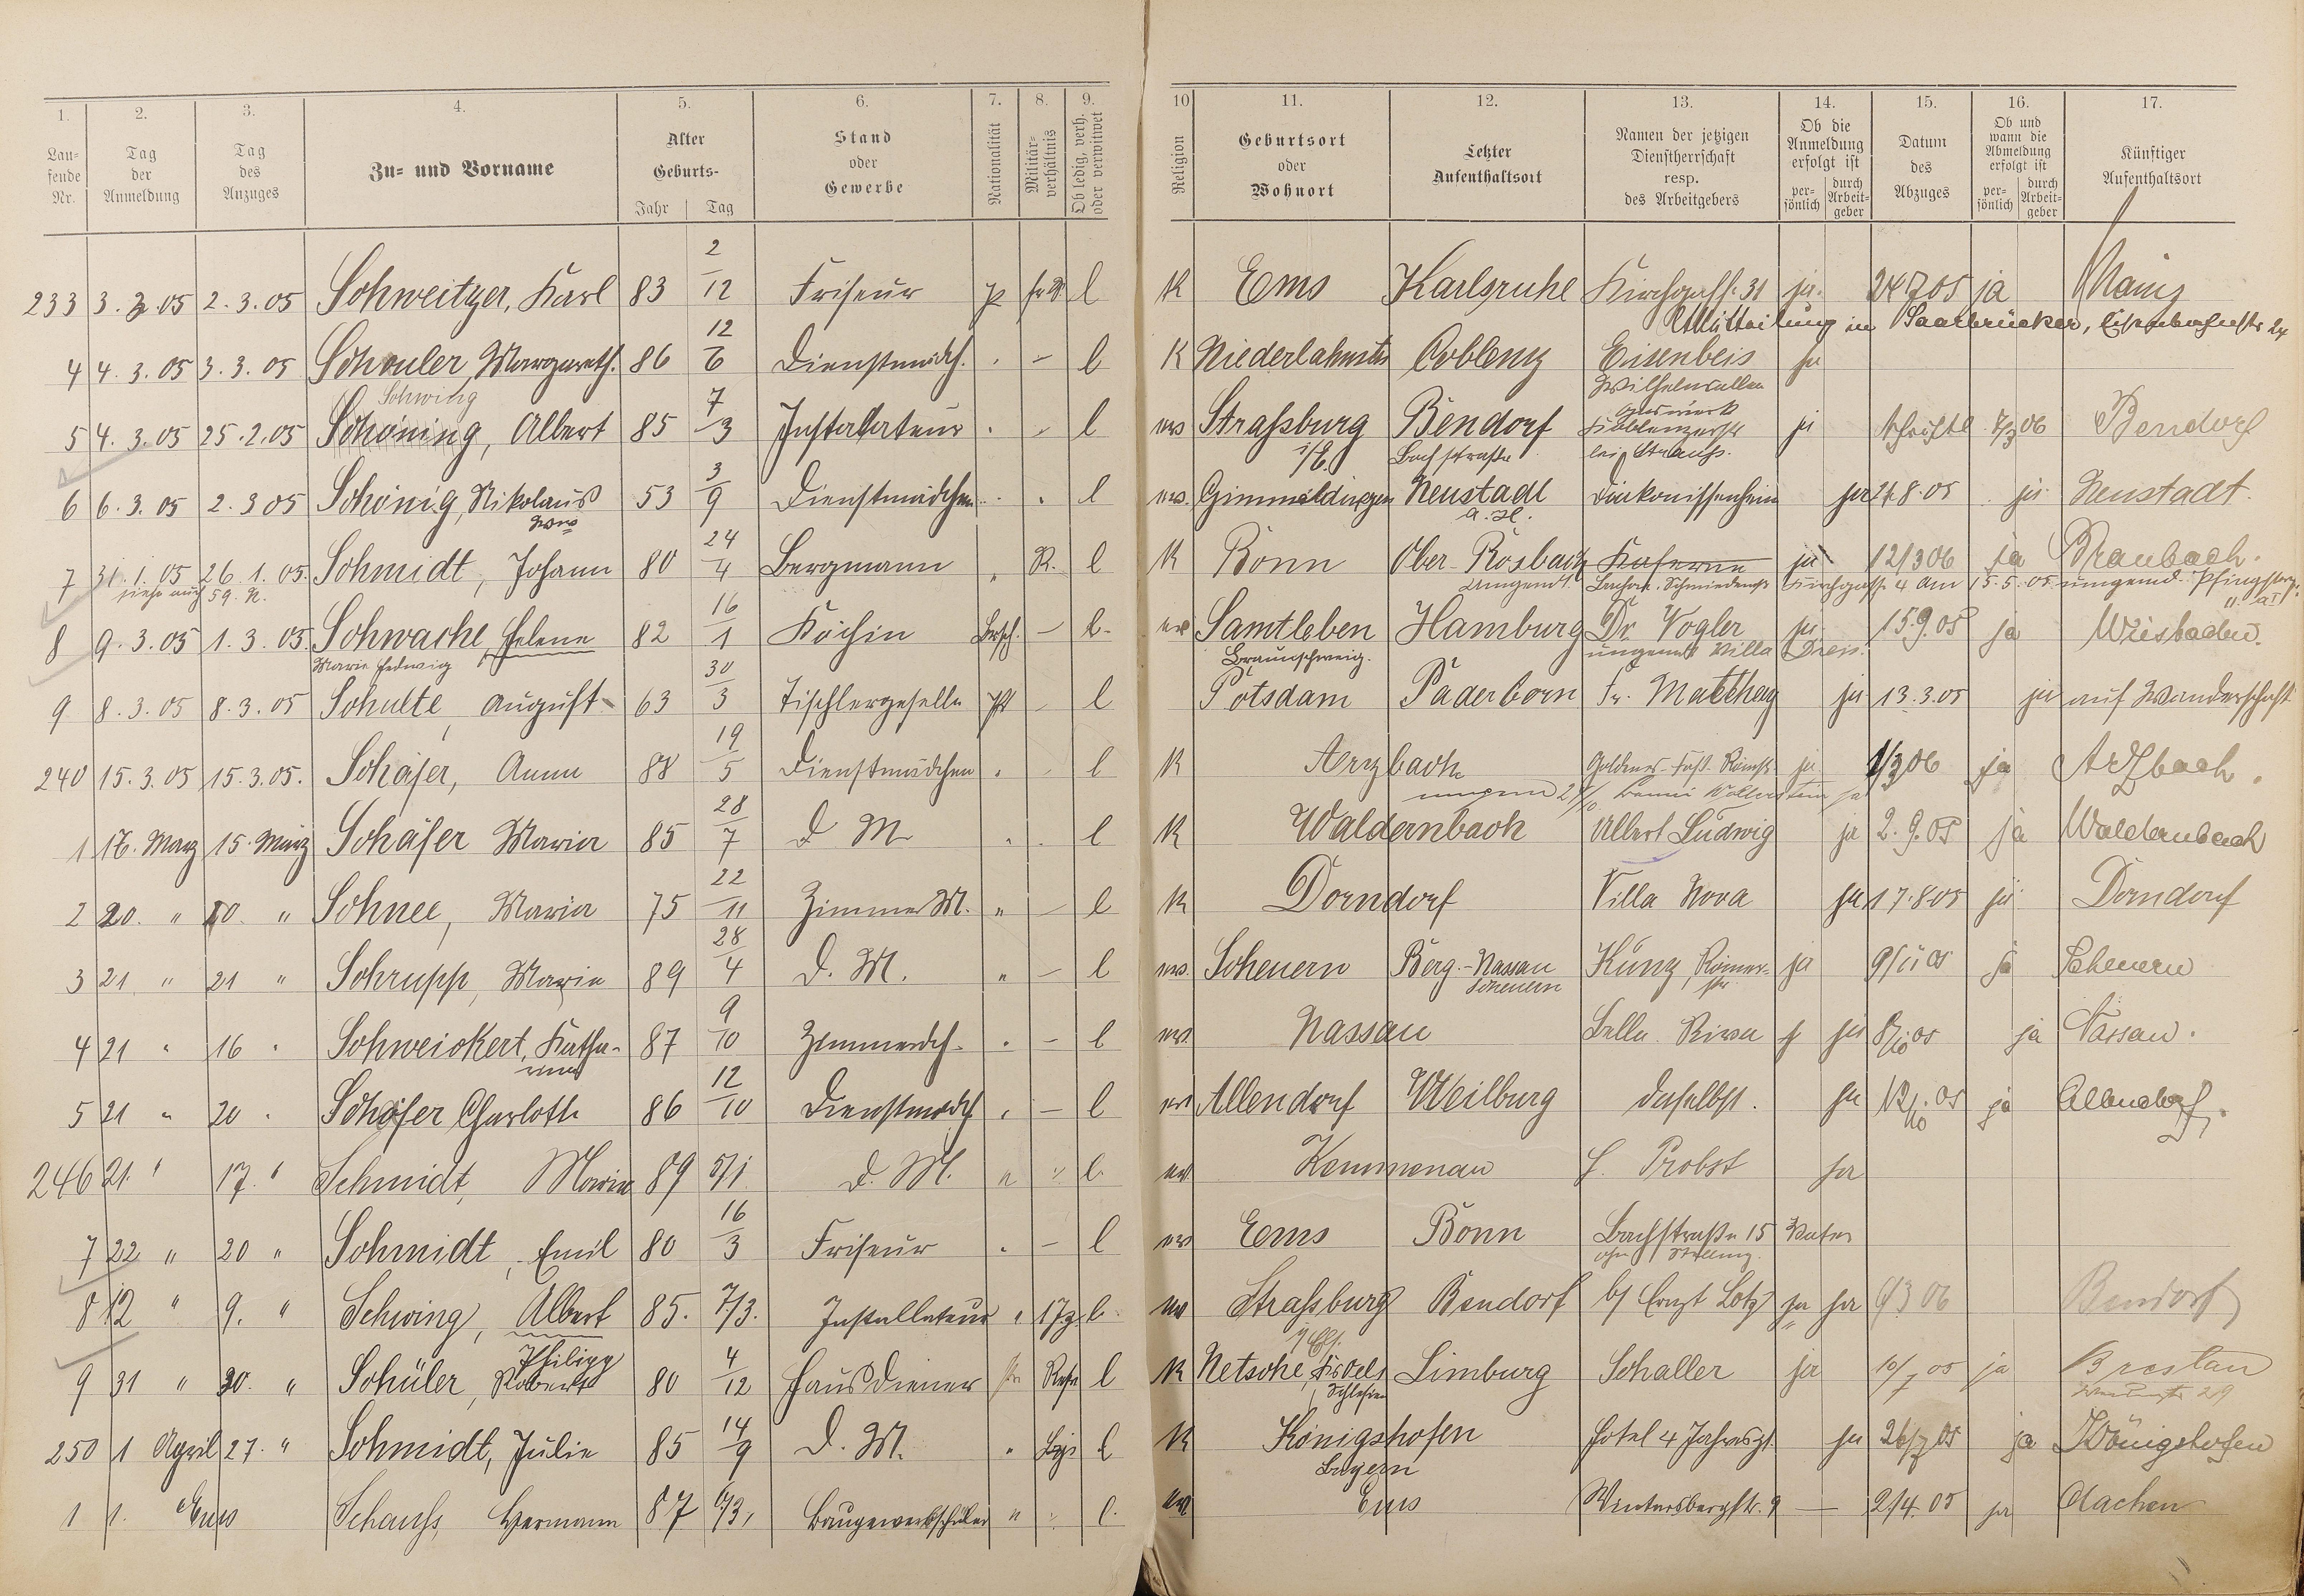 1. 2. 3. 4. 5. 6. 7. 8. 9. 10 11. 12. 13. 14. 15. 16. 17.
Lau-
fende
Nr.
Tag
der
Anmeldung
Tag
des
Anzuges
Zu- und Vorname
Alter
Geburts-
Jahr Tag
Stand
oder
Gewerbe
Nationalität
Militär-
verhältnis
Ob ledig, verh.
oder verwitwet
Religion
Geburtsort
oder
Wohnort
Letzter
Aufenthaltsort
Namen der jetzigen
Dienstherrschaft
resp.
des Arbeitgebers
Ob die
Anmeldung
erfolgt ist
per-
sönlich
durch
Arbeit-
geber
Datum
des
Abzuges
Ob und
wann die
Abmeldung
erfolgt ist
per-
sönlich
durch
Arbeit-
geber
Künftiger
Aufenthaltsort
233 3. 3. 05 2. 3. 05 Schweitzer, Karl 83 2/12 Friseur p l K Ems Karlsruhe Kirchgasse 31 ja 24 7 05 ja Mainz
Mitteilung in Saarbrücken
4 4. 3. 05 3. 3. 05 Schouler, Margareth. 86 12/6 Dienstmdch. - l K Niederlahnstein Coblenz Eisenbeis ja
Schwing Wilhelmsallee
5 4. 3. 05 25. 2. 05 Schöning, Albert 85 7/3 Installateur l ev Straßburg Bendorf Gaswerk ja 06 Bendorf
i/E. Bachstraße bei Strauß.
6 6. 3. 05 2. 3 05 Schönig, Nikolaus 53 3/9 Dienstmädchen l ev. Gimmeldingen Neustadt Diakonissenheim ja 8. 05 ja Neustadt.
a. H.
7 31. 1. 05 26. 1. 05. Schmidt, Johann 80 24/4 Bergmann " R. l K Bonn Ober-Rosbach Kaserne ja 12/3 06 ja Braubach.
siehe auch 59. N. umgend. 4 am 15. 5. 05. umgend.
8 9. 3. 05 1. 3. 05. Schwache, Helene 82 16/1 Köchin Brsch. - l. ev Samtleben Hamburg Dr. Vogler ja 15. 9. 05 ja Wiesbaden.
Marie Hedwig Braunschweig. Villa
9 8. 3. 05 8. 3. 05 Schulte, August 63 30/3 Tischlergeselle - l Potsdam Paderborn Fr. Matthey ja 13. 3. 05 ja auf Wanderschaft
240 15. 3. 05 15. 3. 05. Schäfer, Anna 88 19/5 Dienstmädchen " - l K Arzbach Goldenes Faß Römerstr ja 1/3 06 ja Arzbach.
1 16. März 15. März Schäfer Maria 85 28/7 D M " l K Waldernbach Albert Ludwig ja 2. 9. 05 ja Waldernbach
2 20. " 20. " Schnee, Maria 75 22/11 Zimmer M. " - l K Dorndorf Villa Nova ja 17. 8 05 ja Dorndorf
3 21 " 21 " Schrupp, Maria 89 28/4 D. M. " - l ev. Scheuern Berg.-Nassau Kunz, Römer- ja 9/11 05 ja Scheuern
Scheuern str.
4 21 " 16 " Schweickert, Katha- 87 9/10 Zimmerdch. " - l ev. Nassau Bella Riva ja 8/10 05 ja Nassau.
rina
5 21 " 20 " Schäfer Charlotte 86 12/10 Dienstmdch " - l ev Allendorf Weilburg daselbst. ja 05 ja Allendorf.
246 21. " 17. " Schmidt, Maria 89 5/1 D. M. " l. ev. Kemmenau H. Probst ja
7 22 " 20 " Schmidt, Emil 80 16/3 Friseur " - l ev Ems Bonn Bachstraße 15 Vater
ohne Stellung.
8 12 " 9. " Schwing, Albert 85. 7/3. Installateur " l. ev Straßburg Bendorf b/ Ernst Lotz ja ja 6/3 06 Bendorf
i/Els.
Philipp
9 31 " 30. " Schüler, Robert 80 4/12 Hausdiener l K Netsche, Krs Oels Limburg Schaller ja 10/7 05 ja Breslau
Schlesien 29
250 1 April 27. " Schmidt, Julie 85 14/9 D. M. " l K Königshofen Hotel 4 Jahreszt. ja 26/7 05 ja Königshofen
Bayern
1 1. " Ems Schauß, Hermann 87 6/3, Baugewerkschüler " l. ev Ems Wintersbergstr. 9 - 2/4. 05 ja Aachen